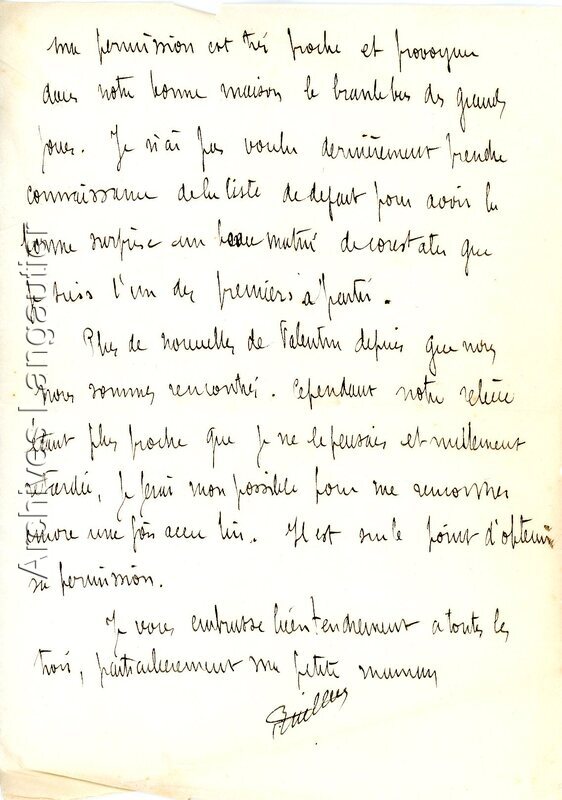 ma permission est très proche et provoquer
dans notre bonne maison le branle bas des grands
jours. Je n'ai pas voulu dernièrement prendre
connaissance de la liste de départ pour avoir la
bonne surprise un beau matin de constater que
je suis l'un des premiers à partir.
Plus de nouvelles de Valentin depuis que nous
nous sommes rencontrés. Cependant notre relève
étant plus proche que je ne le pensais et nullement
retardée, je ferai mon possible pour me rencontrer
encore une fois avec lui. Il est sur le point d'obtenir
sa permission.
Je vous embrasse bien tendrement a toutes les
trois, particulièrement ma petite maman
Archives Langautier